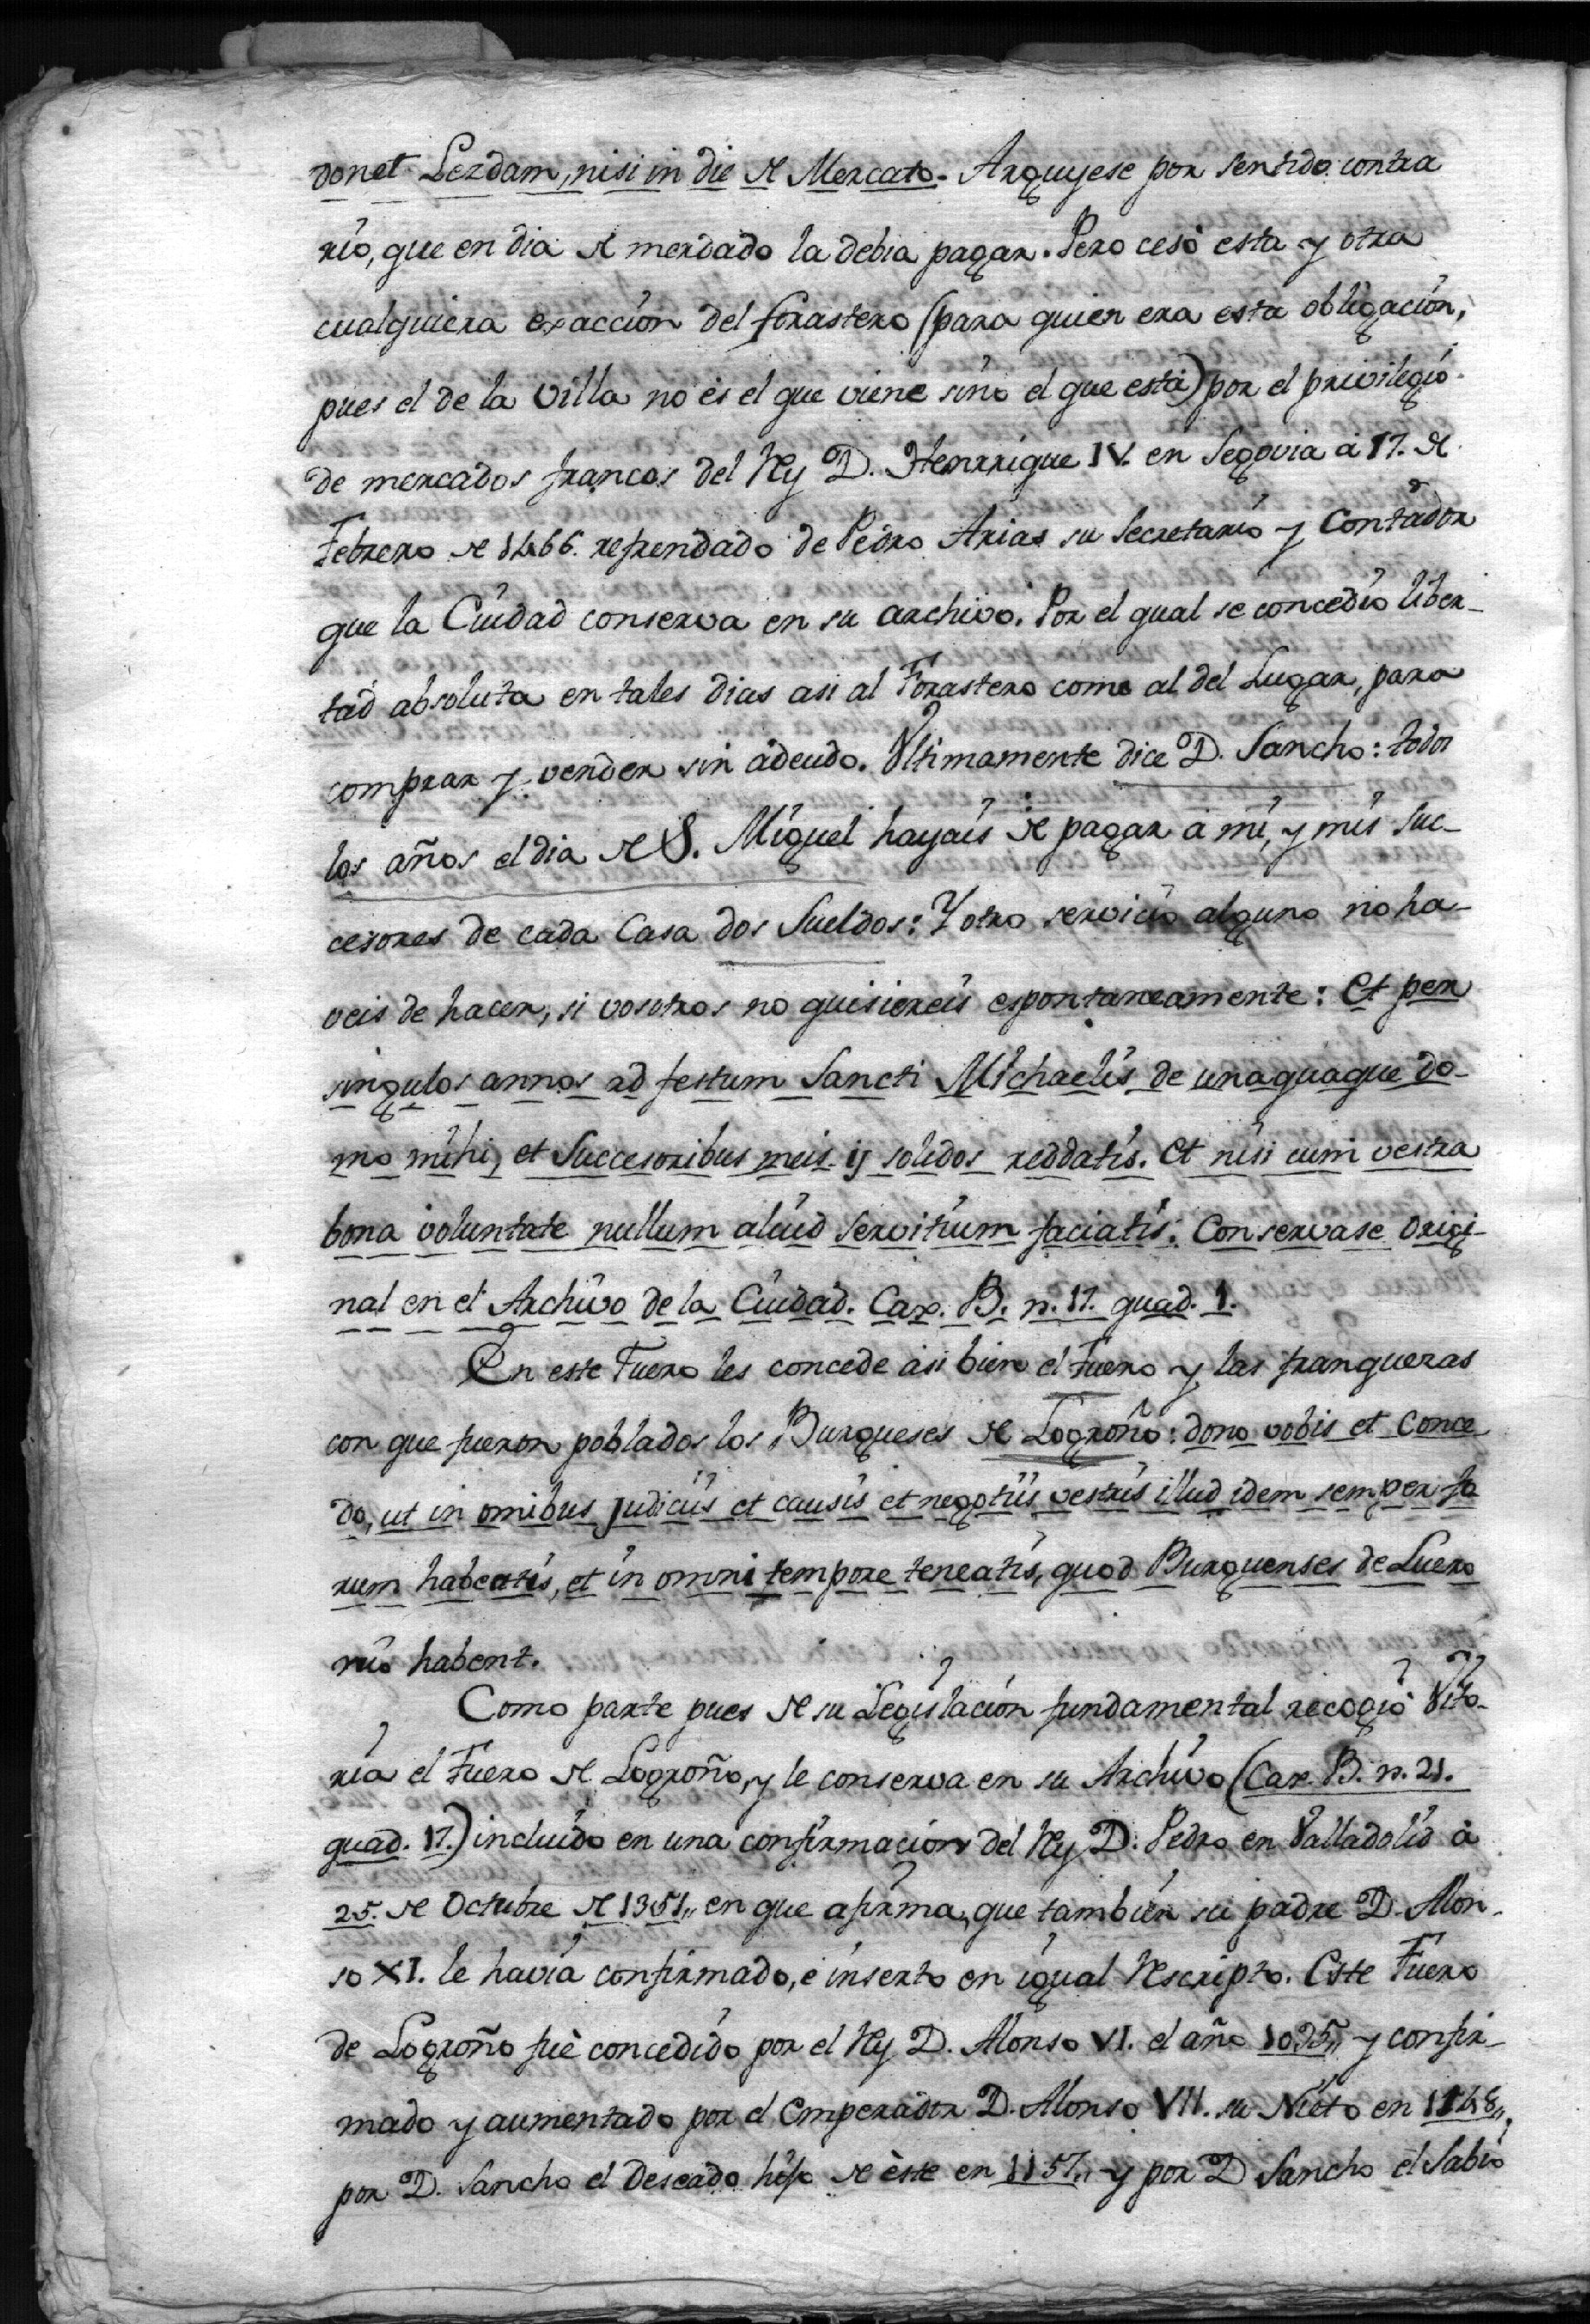 donet Lezdam, nisi in die de Mercato. Arguyese por sentido contra
rio, que en dia de mercado la debia pagar. Pero cesó esta y otra
cualquiera exacción del forastero (para quien era esta obligación,
pues el de la Villa no és el que viene sino el que está) por el privilegio
de mercados francos del Rey D. Henrrique IV. en Segovia á 17. de
Febrero de 1466. refrendado de Pedro Arias su Secretario y Contador
que la Ciudad conserva en su archivo. Por el qual se concedio liber-
tad absoluta en tales dias asi al Forastero como al del Lugar, para
comprar y vender sin adeudo. Ultimamente dice D. Sancho: todos
los años el dia de S. Miguel hayais de pagar á mi, y mis suc-
cesores de cada Casa dos Sueldos: Y otro servicio alguno no ha-
veis de hacer, si vosotros no quisiereis espontaneamente: Et per
singulos annos ad festum Sancti Michaelis de unaquaque do-
mo mihi, et Succesoribus meis ij solidos reddatis. Et nisi cum vestra
bona voluntate nullum aliud servitium faciatis. Conservase origi-
nal en el Archivo de la Ciudad. Cax. B. n. 17. quad. 1.
En este Fuero les concede asi bien el Fuero y las franquezas
con que fueron poblados los Burgueses de Logroño: dono vobis et Conce
do, ut in omibus judiciis et causis et negotiis vestris illud idem semper fo
rum habeatis, et in omni tempore teneatis, quod Burguenses de Lucro
nio habent.
Como parte pues de su Legislación fundamental recogió Vito-
ria el Fuero de Logroño, y le conserva en su Archivo (Cax. B. n. 21.
quad. 17.) incluido en una confirmación del Rey D. Pedro en Valladolid à
25. de Octubre de 1351,, en que afirma, que tambien su padre D. Alon-
so XI. le havia confirmado, é inserto en igual Rescripto. Este Fuero
de Logroño fué concedido por el Rey D. Alonso VI. el año 1095,, y confir-
mado y aumentado por el Emperador D. Alonso VII. su Nieto en 1148,,
por D. Sancho el Deseado hijo de èste en 1157,, y por D Sancho el Sabio